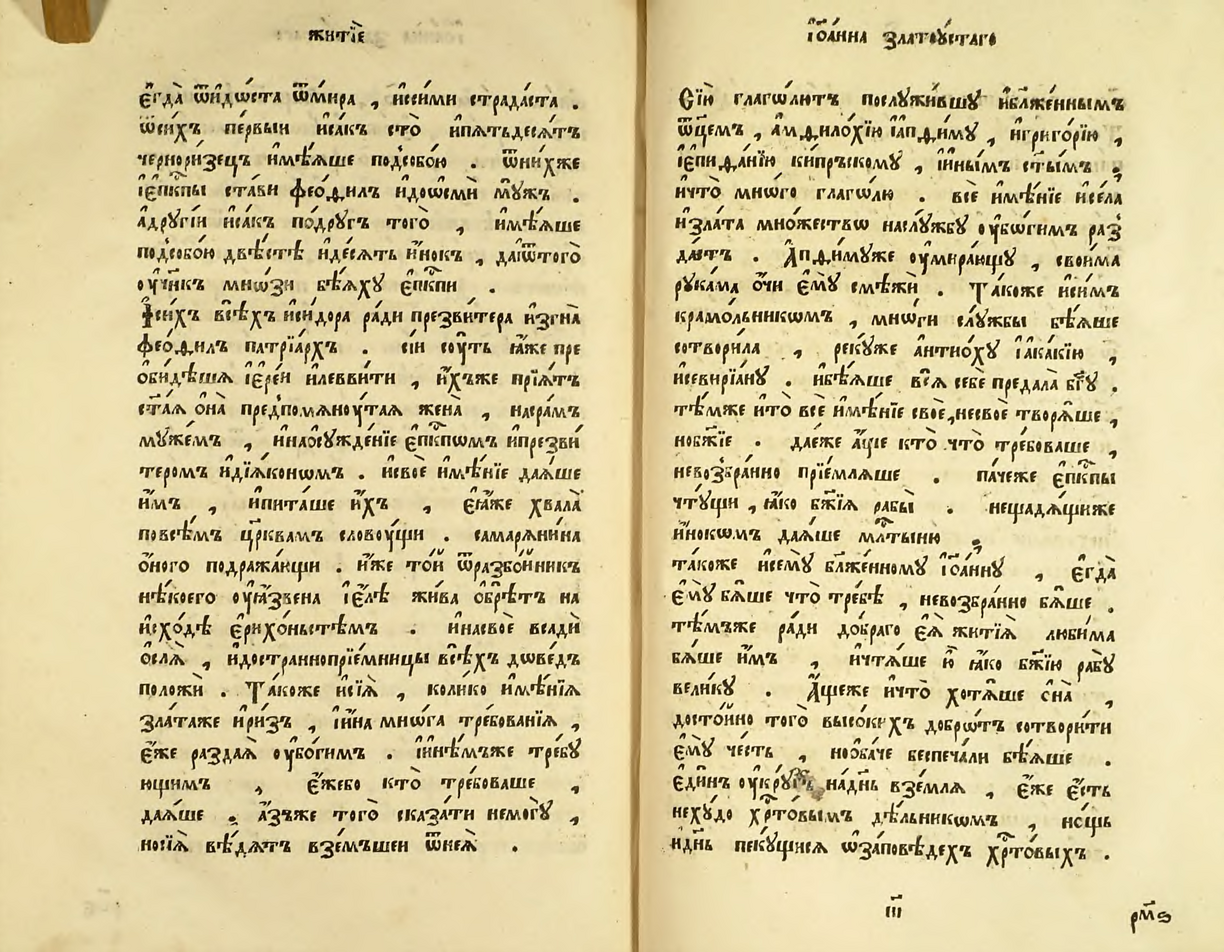 житїе
є҆гда̀ ѿи́дѡста ѿми́ра , исси́ми страда́ста .
ѿси́хъ пе́рвыи иса́къ сто̀ и҆пѧтьдесѧ́тъ
черноризецъ и҆мѣ́ѧше подсобо́ю . ѿни́хже
і҆єпкпы стави фео́филъ и҆до́ѡсми мꙋжъ .
а҆дрꙋгі́и иса́къ по́дрꙋгъ того̀ , и҆мѣ́ѧше
подсобо́ю двѣстѣ и҆десѧть и҆нокъ , даѿтого̀
оу҆чн҃къ мно́ѕи бѣ́ѧхꙋ є҆пкпи .
Ісихъ всѣхъ и҆си́дора ра́ди презви́тера и҆згна̀
фео́филъ патрїа́рхъ . сі́и сꙋть ꙗ҆́же пре
ѻ҆би́дѣша і҆єре́и и҆левви́ти , и҆́хъже прїѧ́тъ
ста́ѧ ѻ҆на̀ пред̾помѧнꙋ́таѧ жена̀ , насра́мъ
мꙋже́мъ , и҆наѻсꙋжде́нїе є҆пкпѡмъ и҆презви́
теромъ и҆дїѧ́конѡмъ . и҆своѐ и҆мѣ́нїе даѧ́ше
и҆̀мъ , и҆пита́ше и҆̀хъ , є҆ѧ́же хвала̀
повсѣ́мъ цр҃квамъ слову́щи . самарѧни́на
ѻ҆́ного подража́ющи . и҆́же то́й ѿразбо́йникъ
нѣ́коего оу҆ꙗ҆́звена і҆є҆лѣ̀ жива ѻ҆брѣ́тъ на
и҆схо́дѣ є҆рихо́ньстѣмъ . и҆насвоѐ всадѝ
ѻ҆слѧ̀ , и҆достраннопрїе́мницы всѣ́хъ дѡве́дъ
положѝ . Та́коже и҆сїѧ̀ , коли́ко и҆мѣ́нїѧ
зла́таже и҆ри́зъ , і҆и́на мнѡ́га тре́бованїѧ ,
є҆́же раздаѧ̀ оу҆бо́гимъ . і҆и́нѣмъже тре́бꙋ
ющимъ , є҆́жебо кто̀ тре́боваше ,
даѧ́ше . а҆́зъже того̀ сказа́ти немогꙋ̀ ,
носїѧ̀ вѣ́дѧтъ взе́мъшеи ѿнеѧ̀ .
і҆ѻа́нна златоу́стаго
Сїю̀ глаго́лютъ послꙋжи́вшꙋ и҆бл҃же́ннымъ
ѿце́мъ , амфило́хїю і҆апфи́мꙋ , и҆григо́рїю ,
і҆є҆пифа́нїю ки́пръскомꙋ , і҆и́нымъ ст҃ы́мъ .
и҆что̀ мнѡ́го глаго́лю . всѐ и҆мѣ́нїе и҆се́ла
и҆зла́та мно́жествѡ наслꙋ́жбꙋ оу҆бѡ́гимъ раз
да́ѧтъ . А҆пфи́мꙋже оу҆мира́ющꙋ , свои́ма
рꙋка́ма ѻ҆́чи є҆мꙋ̀ смѣжѝ . Та́коже и҆си́мъ
крамо́льникѡмъ , мнѡ́ги слꙋ́жбы бѣ́ѧше
сотвори́ла , рекꙋже а҆нтио́хꙋ і҆ака́кїю ,
и҆севирїа́нꙋ . и҆бѣ́ѧше всѧ̀ себѐ предала̀ бг҃ꙋ .
тѣ́мже и҆то̀ всѐ и҆мѣ́нїе своѐ , несвоѐ творѧ́ше ,
нобж҃їе . даєже а҆́ще кто̀ что̀ тре́боваше ,
невозбра́нно прїе́млѧше . па́чеже є҆пкпы
чтꙋ́щи , ꙗ҆́ко бж҃їѧ рабы̀ . нещадѧ́щиже
и҆́нокѡмъ даѧ́ше мл҃тыню .
та́коже и҆семꙋ̀ бл҃же́нномꙋ і҆ѻа́ннꙋ , є҆гда̀
є҆мꙋ̀ бѧ́ше что̀ тре́бѣ , невозбра́нно бѧ́ше .
тѣ́мъже ра́ди до́браго є҆ѧ̀ житїѧ̀ люби́ма
бѧ́ше и҆̀мъ , и҆чтѧ́ше ю҆̀ ꙗ҆́ко бж҃їю рабꙋ̀
вели́кꙋ . А҆́щеже и҆что̀ хотѧ́ше сїа̀ ,
досто́йно того̀ высо́кихъ добро́тъ сотвори́ти
є҆мꙋ̀ че́сть , ноѻба́че беспеча́ли бѣ́ѧше .
є҆ди́нъ оу҆крꙋхъ на́днь взе́млѧ , є҆́же є҆́сть
нехꙋ́до хр҇то́вымъ дѣ́льникѡмъ , но́щь
и҆днь пекꙋ́щисѧ ѡ҆за́повѣдехъ хр҇то́выхъ .
ш҃ рм҃ѕ